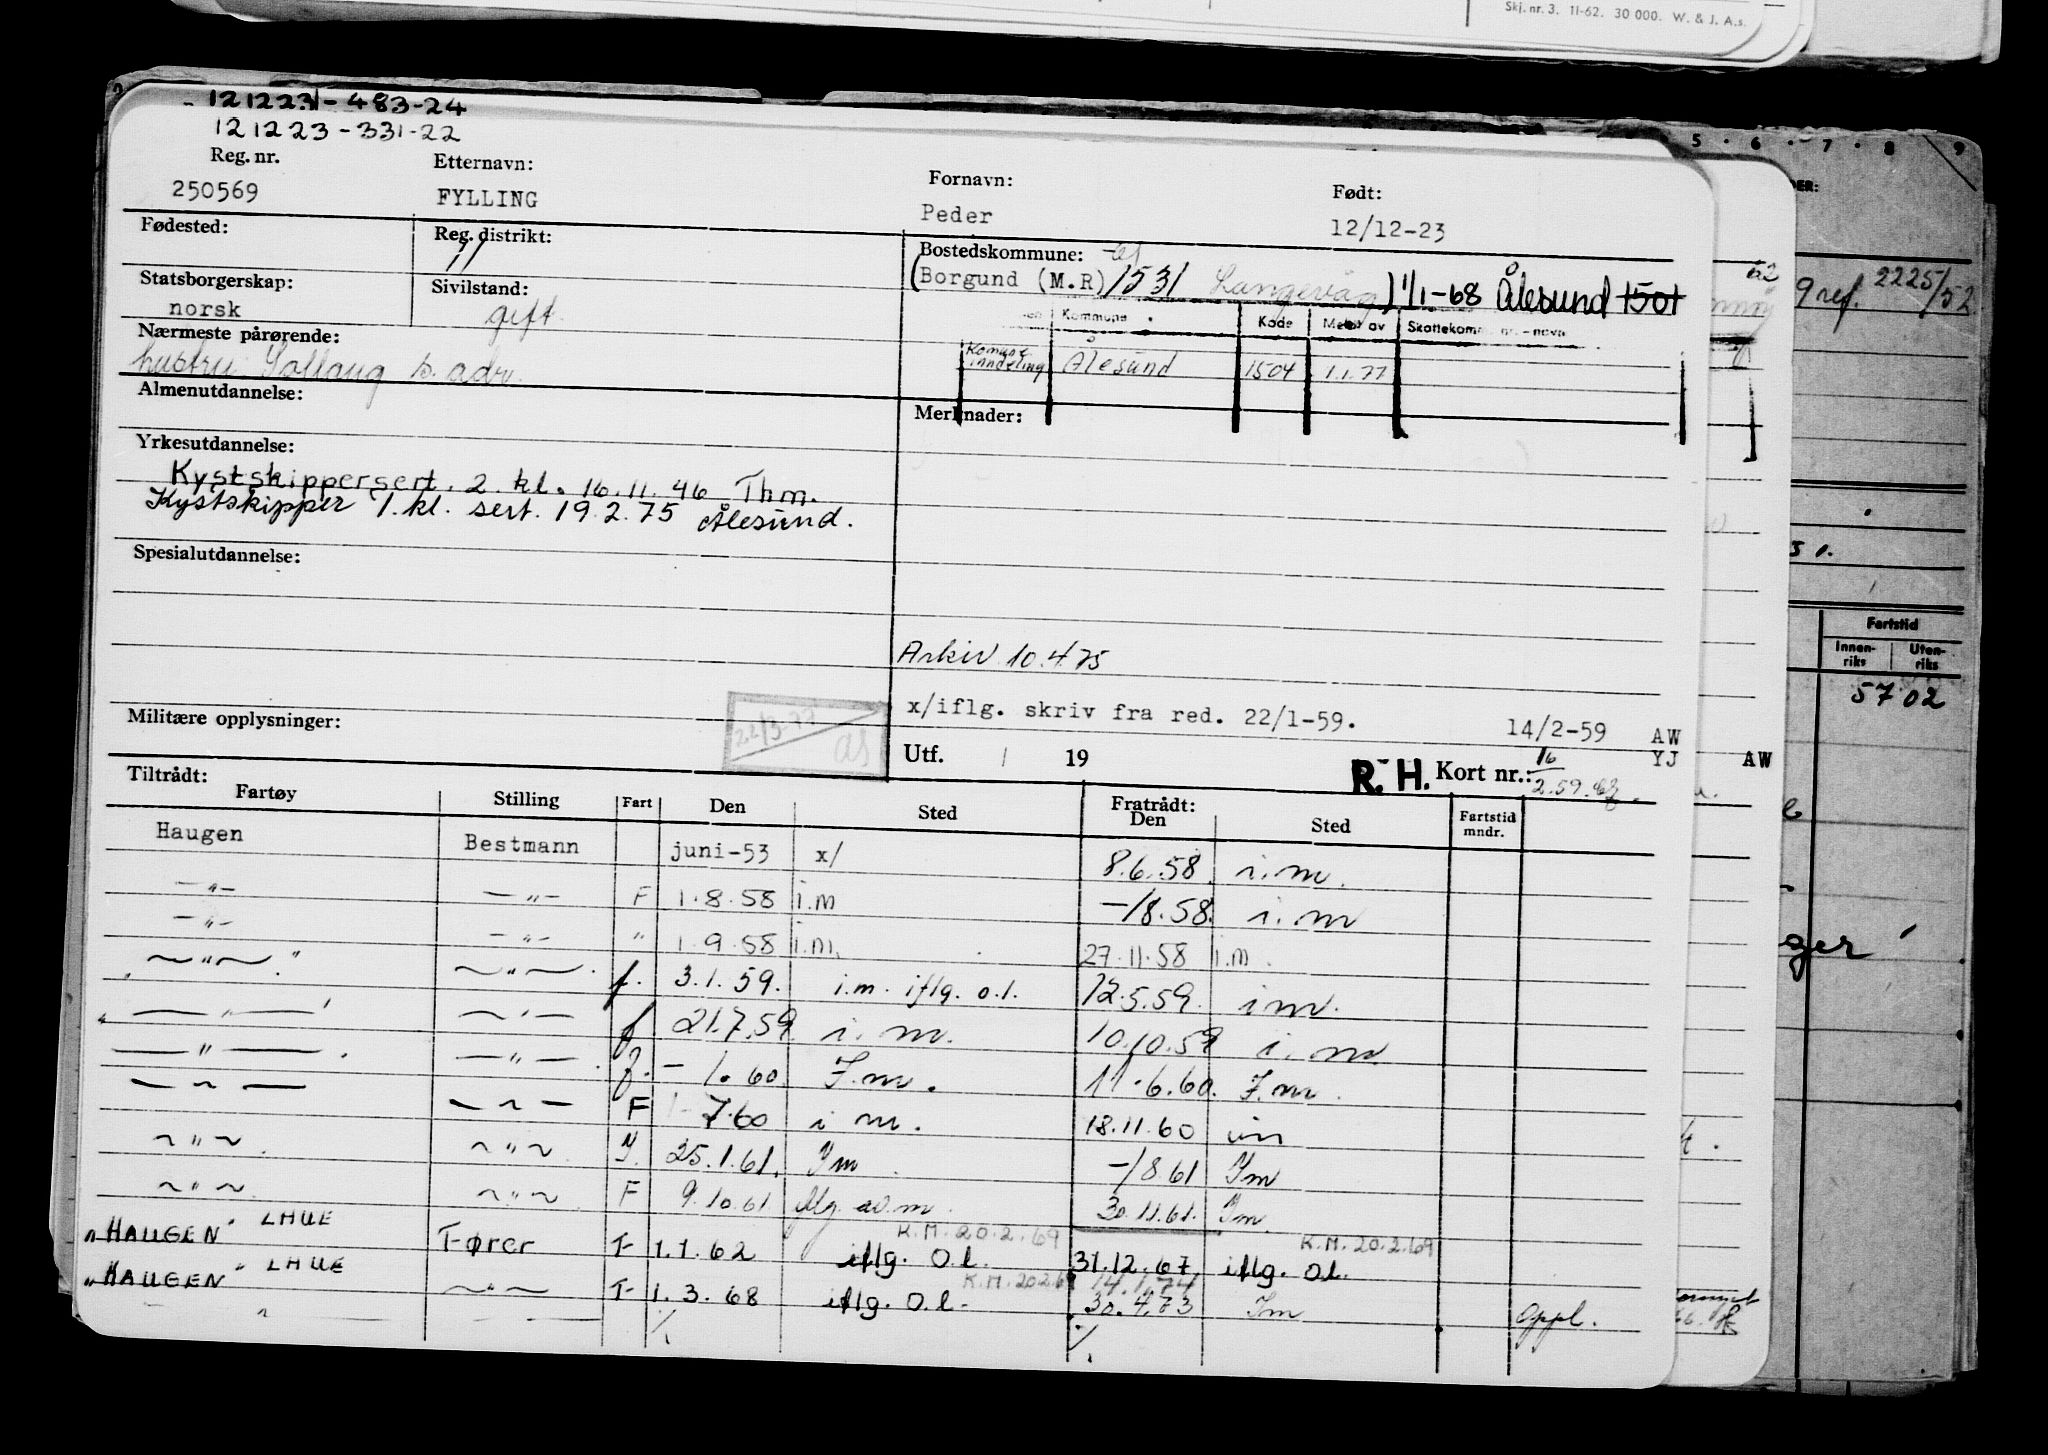 Skj. nr. 3. 11-62. 30 000. W. & J. A.s.
121223 - 483-24
121223 - 331-22
Reg. nr. Etternavn: Fornavn: Født:
250569 FYLLING Peder 12/12-23
Fødested: Reg. distrikt: Bostedskommune:
11 (Borgund (M.R) 1531 Langevåg) 1/1-68 Ålesund 1501
Statsborgerskap: Sivilstand:
norsk gift
Kommune Kode Meldt av Skattekom. nr. - navn
Nærmeste pårørende:
hustru Sollaug s. adr.
Komune inndeling Ålesund 1504 1.1.77
Almenutdannelse: Merknader:
Yrkesutdannelse:
Kystskippersert. 2. kl. 16.11.46 Thm.
Kystskipper 1. kl. sert. 19.2.75 Ålesund.
Spesialutdannelse:
Arkiv 10.4.75
x/iflg. skriv fra red. 22/1-59. 14/2-59 AW
Militære opplysninger: 22/3-77 as
Utf. / 19 R.H. Kort nr.: 16/2.59. YJ AW
Tiltrådt: Fratrådt:
Fartøy Stilling Fart Den Sted Den Sted Fartstid mndr.
Haugen Bestmann juni-53 x/ 8.6.58. i.m.
—"— —"— F 1.8.58 i.m —/8.58. i.m
—"— —"— " 1.9.58 i.m. 27.11.58 i.m.
—"— —"— f. 3.1.59. i.m. iflg. o.l. 12.5.59. i m.
—"— —"— f 21.7.59. i.m. 10.10.59 i.m
—"— —"— f. — 1.60. I.m. 11.6.60. I.m.
—"— —"— F 7.60 i m. 18.11.60 im
—"— —"— 25.1.61. Im —/8.61 Im
—"— —"— F 9.10.61 iflg. av.m. 30.11.61. Im.
K.M. 20.2.69 K.M. 20.2.69
"HAUGEN" LHUE Fører T- 1.1.62 iflg. O.l. 31.12.67. iflg. O.l.
K.M. 20.2.69 14.1.74
"HAUGEN" LHUE —"— T- 1.3.68 iflg. O.l. 30.4.73 Im Oppl.
5 · 6 · 7 · 8 · 9
9 ref. 2225/52
Fartstid
Innen-riks Uten-riks
5702